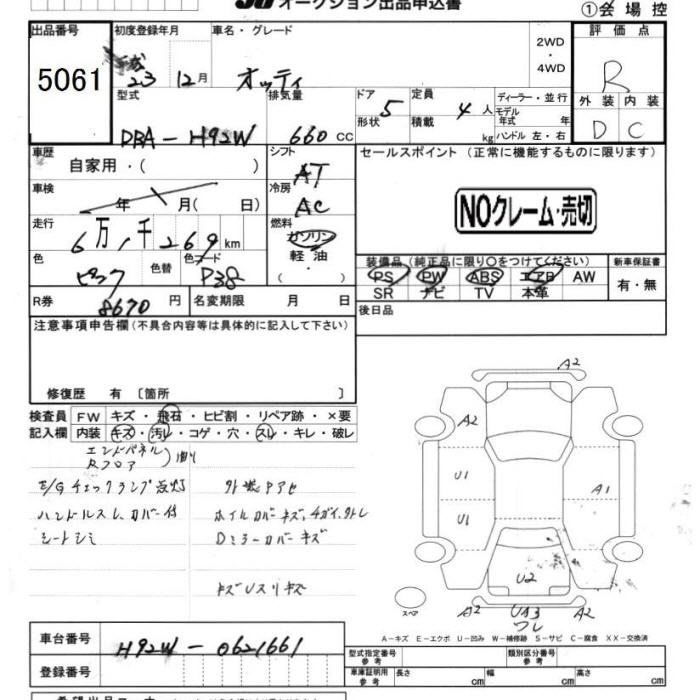 オークション出品申込書
①会場控
出品番号 初度登録年月 車名・グレード 2WD・4WD 評価点
5061 23 12月 オッティ R
型式 排気量 ドア形状 定員 積載 ディーラー・並行 モデル年式 年 外装 内装
DBA-H92W 660 CC 5 4人 kg ハンドル 左・右 D C
車歴 自家用・( ) シフト AT セールスポイント (正常に機能するものに限ります)
車検 年 月( 日) 冷房 AC NOクレーム・売切
走行 6万,千269km 燃料 ガソリン 軽油・( )
装備品(純正品に限り○をつけてください) 新車保証書
色 ピンク 色替 色コード P38 PS PW ABS エアB AW 有・無
SR ナビ TV 本革
R券 8670円 名変期限 月 日 後日品
注意事項申告欄(不具合内容等は具体的に記入して下さい)
修復歴 有 〔箇所 〕
検査員 FW キズ・飛石・ヒビ割・リペア跡・×要
記入欄 内装 キズ・汚レ・コゲ・穴・スレ・キレ・破レ
エンドパネル
Rフロア
E/Gチェックランプ点灯
ハンドルスレ、カバー付 ホイルカバーキズ、
シートシミ Dミラーカバーキズ
A2
A2
U1 A1
U1
U2
スペア A2 UA3 A2
ワレ
A-キズ E-エクボ U-凹み W-補修跡 S-サビ C-腐食 XX-交換済
車台番号 H92W-0621661
型式指定番号 参考 類別区分番号 参考
登録番号 車庫証明用 参考 長さ cm 幅 cm 高さ cm